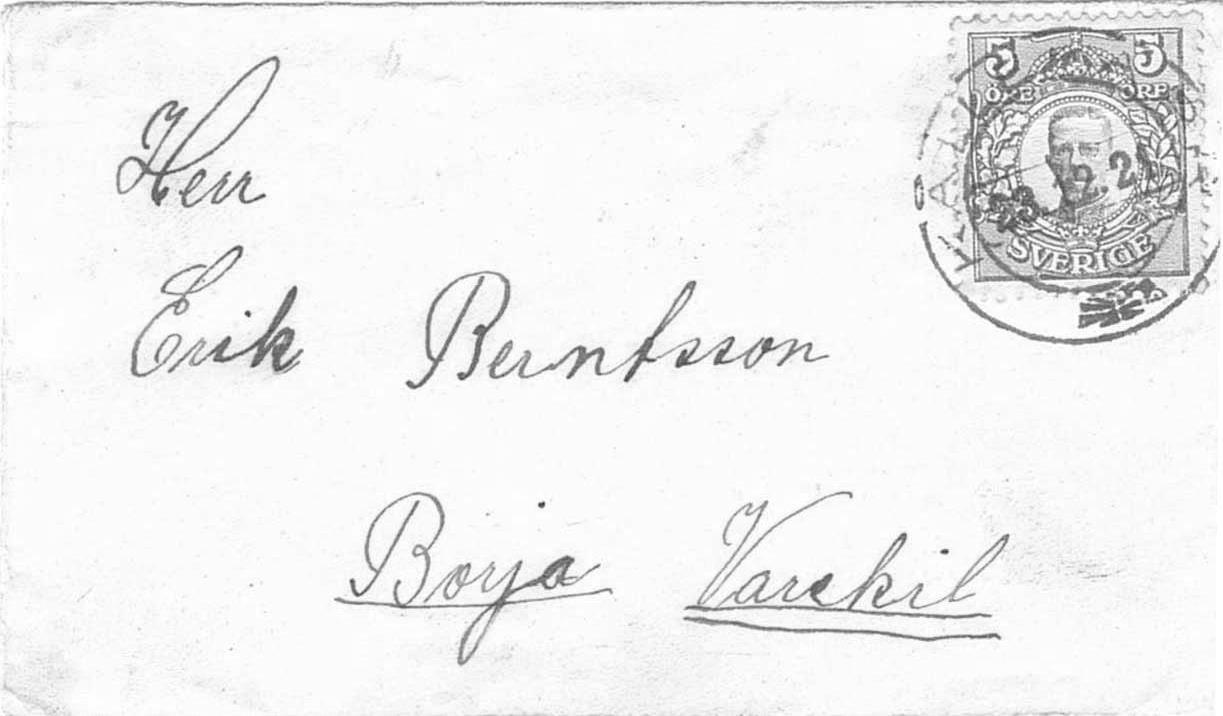 5 5
ÖRE ÖRE
23.12.21
SVERIGE
Herr
Erik Berntsson
Borja Varekil